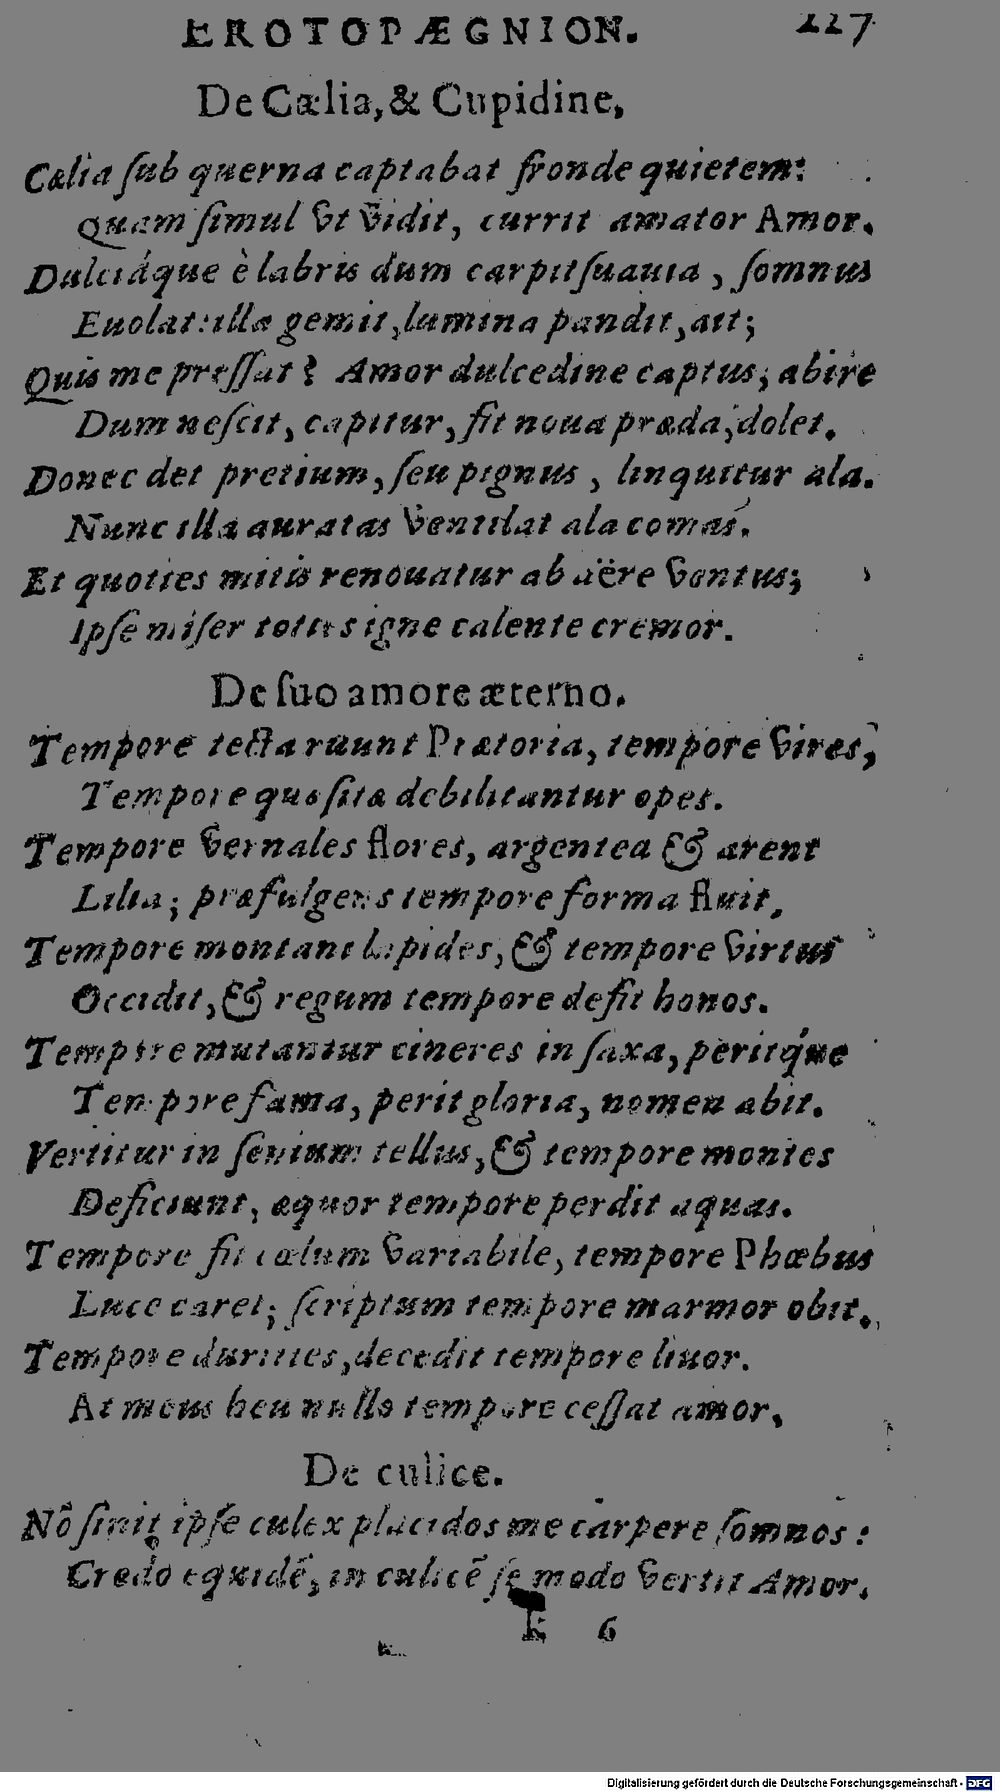 EROTOPÆGNION. 227
De Cælia, & Cupidine,
Cælia ſub querna captabat fronde quietem:
Quam ſimul vt vidit, currit amator Amor.
Dulciáque è labris dum carpit ſuauia, ſomnus
Euolat: illa gemit, lumina pandit, ait;
Quis me preſſat? Amor dulcedine captus, abire
Dum neſcit, capitur, fit noua præda, dolet.
Donec det pretium, ſeu pignus, linquitur ala.
Nunc illa auratas ventilat ala comas.
Et quoties mitis renouatur ab aëre ventus;
Ipſe miſer toties igne calente cremor.
De ſuo amore æterno.
Tempore tecta ruunt Prætoria, tempore vires,
Tempore quæſitæ debilitantur opes.
Tempore vernales flores, argentea & arent
Lilia; præfulgens tempore forma fluit,
Tempore montani lapides, & tempore virtus
Occidit, & regum tempore deſit honos.
Tempore mutantur cineres in ſaxa, peritq́ue
Tempore fama, perit gloria, nomen abit.
Vertitur in ſenium tellus, & tempore montes
Deficiunt, æquor tempore perdit aquas.
Tempore fit cælum variabile, tempore Phœbus
Luce caret; ſcriptum tempore marmor obit.
Tempore durities, decedit tempore liuor.
At meus heu nullo tempore ceſſat amor.
De culice.
Nõ ſinit ipſe culex placidos me carpere ſomnos:
Credo equidẽ, in culicẽ ſe modo vertit Amor.
k 6
Digitalisierung gefördert durch die Deutsche Forschungsgemeinschaft - DFG